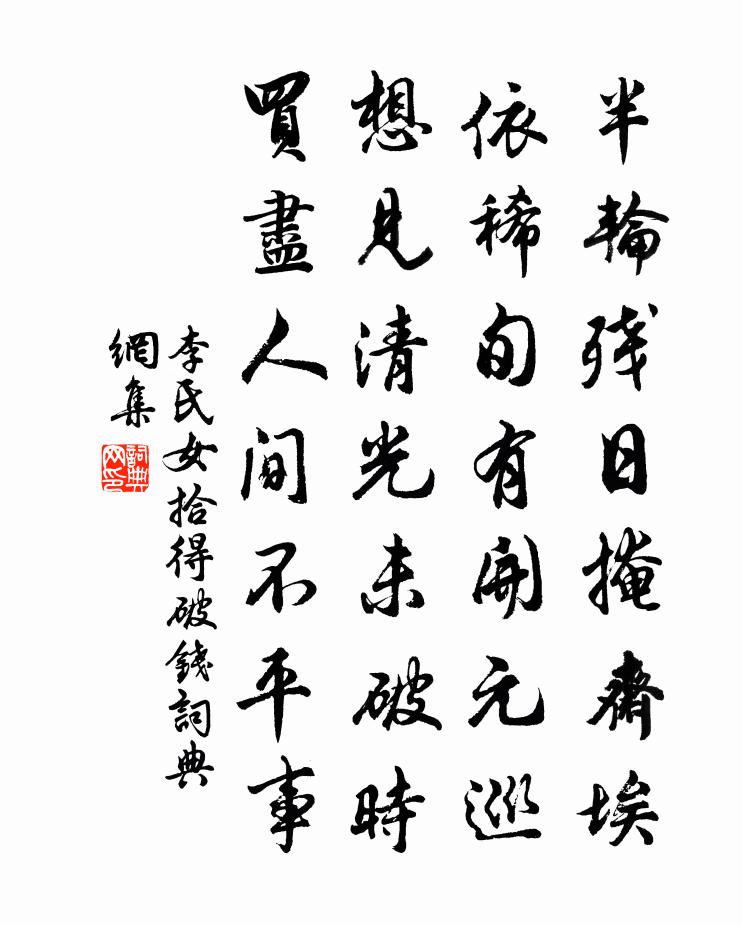 半輪残日掩齋埃
依稀旬有開元巡
想見清光未破時
買盡人间不平事
李氏女拾得破錢詞典
網集
詞典網印